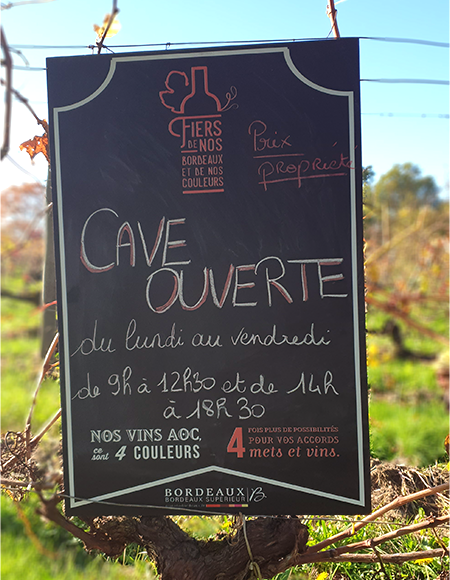 FIERS
DE NOS
BORDEAUX
ET DE NOS
COULEURS
Prix
propriété
CAVE
OUVERTE
du lundi au vendredi
de 9h à 12h30 et de 14h
à 18h30
NOS VINS AOC,
ce sont 4 COULEURS
4 FOIS PLUS DE POSSIBILITÉS
POUR VOS ACCORDS
mets et vins.
BORDEAUX
BORDEAUX SUPÉRIEUR
B